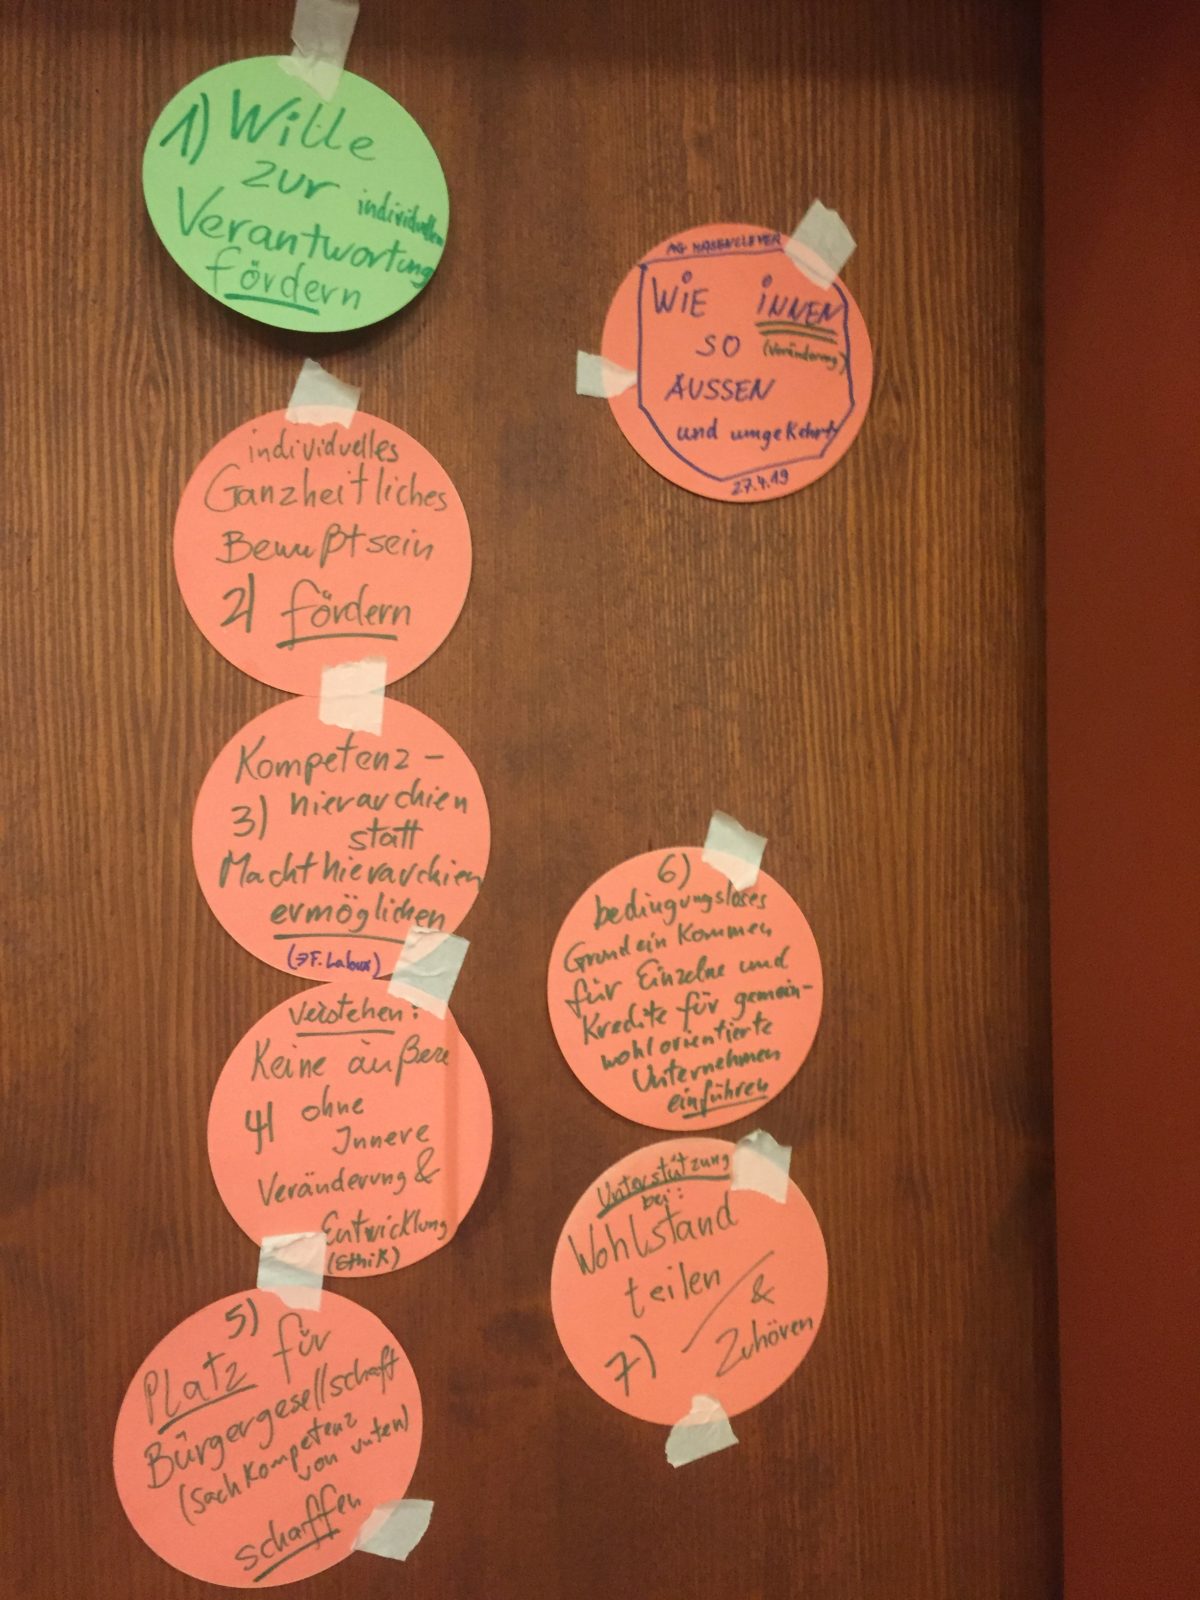 1) Wille
zur individuellen
Verantwortung
fördern
individuelles
Ganzheitliches
Bewußtsein
2) fördern
Kompetenz-
3) hierarchien
statt
Machthierarchien
ermöglichen
(→F. Laloux)
Verstehen:
Keine äußere
4) ohne
Innere
Veränderung &
Entwicklung
(Ethik)
5)
Platz für
Bürgergesellschaft
(Sachkompetenz
von unten)
schaffen
AG HASENCLEVER
WIE INNEN
SO (Veränderung)
AUSSEN
und umgekehrt
27.4.19
6)
bedingungsloses
Grundeinkommen
für Einzelne und
Kredite für gemein-
wohlorientierte
Unternehmen
einführen
Unterstützung
bei:
Wohlstand
teilen
&
7) Zuhören